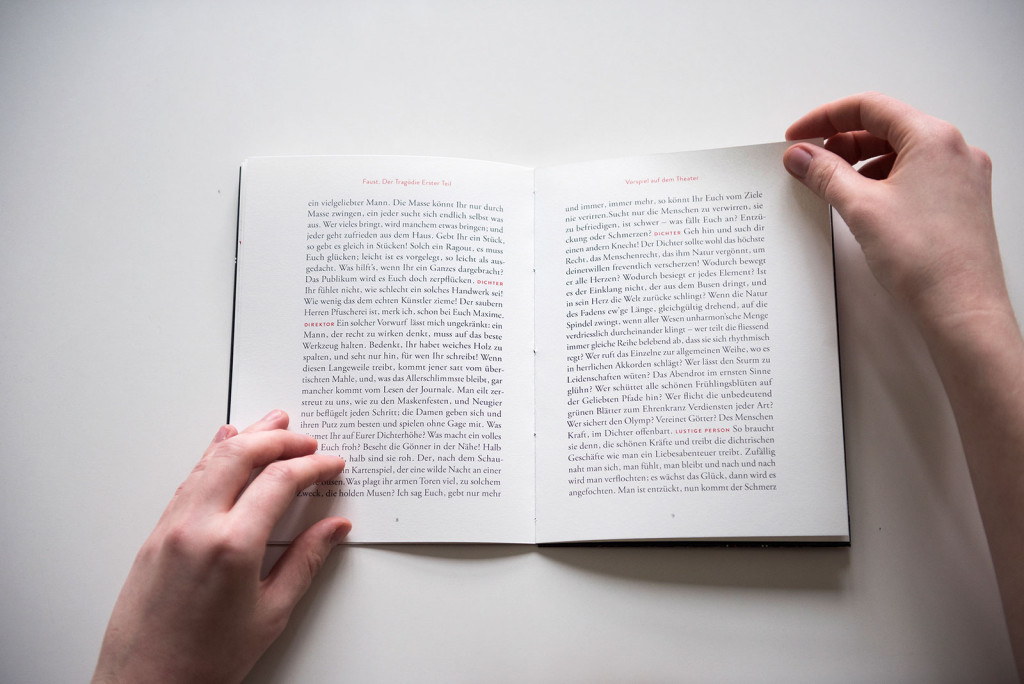 Faust. Der Tragödie Erster Teil
ein vielgeliebter Mann. Die Masse könnt Ihr nur durch
Masse zwingen, ein jeder sucht sich endlich selbst was
aus. Wer vieles bringt, wird manchem etwas bringen; und
jeder geht zufrieden aus dem Haus. Gebt Ihr ein Stück,
so gebt es gleich in Stücken! Solch ein Ragout, es muss
Euch glücken; leicht ist es vorgelegt, so leicht als aus-
gedacht. Was hilft's, wenn Ihr ein Ganzes dargebracht?
Das Publikum wird es Euch doch zerpflücken. DICHTER
Ihr fühlet nicht, wie schlecht ein solches Handwerk sei!
Wie wenig das dem echten Künstler zieme! Der saubern
Herren Pfuscherei ist, merk ich, schon bei Euch Maxime.
DIREKTOR Ein solcher Vorwurf lässt mich ungekränkt: ein
Mann, der recht zu wirken denkt, muss auf das beste
Werkzeug halten. Bedenkt, Ihr habet weiches Holz zu
spalten, und seht nur hin, für wen Ihr schreibt! Wenn
diesen Langeweile treibt, kommt jener satt vom über-
tischten Mahle, und, was das Allerschlimmste bleibt, gar
mancher kommt vom Lesen der Journale. Man eilt zer-
streut zu uns, wie zu den Maskenfesten, und Neugier
nur beflügelt jeden Schritt; die Damen geben sich und
ihren Putz zum besten und spielen ohne Gage mit. Was
met Ihr auf Eurer Dichterhöhe? Was macht ein volles
Euch froh? Beseht die Gönner in der Nähe! Halb
halb sind sie roh. Der, nach dem Schau-
Kartenspiel, der eine wilde Nacht an einer
Was plagt ihr armen Toren viel, zu solchem
Zweck, die holden Musen? Ich sag Euch, gebt nur mehr
8
Vorspiel auf dem Theater
und immer, immer mehr, so könnt Ihr Euch vom Ziele
nie verirren.Sucht nur die Menschen zu verwirren, sie
zu befriedigen, ist schwer – was fällt Euch an? Entzü-
ckung oder Schmerzen? DICHTER Geh hin und such dir
einen andern Knecht! Der Dichter sollte wohl das höchste
Recht, das Menschenrecht, das ihm Natur vergönnt, um
deinetwillen freventlich verscherzen! Wodurch bewegt
er alle Herzen? Wodurch besiegt er jedes Element? Ist
es der Einklang nicht, der aus dem Busen dringt, und
in sein Herz die Welt zurücke schlingt? Wenn die Natur
des Fadens ew'ge Länge, gleichgültig drehend, auf die
Spindel zwingt, wenn aller Wesen unharmon'sche Menge
verdriesslich durcheinander klingt – wer teilt die fliessend
immer gleiche Reihe belebend ab, dass sie sich rhythmisch
regt? Wer ruft das Einzelne zur allgemeinen Weihe, wo es
in herrlichen Akkorden schlägt? Wer lässt den Sturm zu
Leidenschaften wüten? Das Abendrot im ernsten Sinne
glühn? Wer schüttet alle schönen Frühlingsblüten auf
der Geliebten Pfade hin? Wer flicht die unbedeutend
grünen Blätter zum Ehrenkranz Verdiensten jeder Art?
Wer sichert den Olymp? Vereinet Götter? Des Menschen
Kraft, im Dichter offenbart. LUSTIGE PERSON So braucht
sie denn, die schönen Kräfte und treibt die dichtrischen
Geschäfte wie man ein Liebesabenteuer treibt. Zufällig
naht man sich, man fühlt, man bleibt und nach und nach
wird man verflochten; es wächst das Glück, dann wird es
angefochten. Man ist entzückt, nun kommt der Schmerz
9